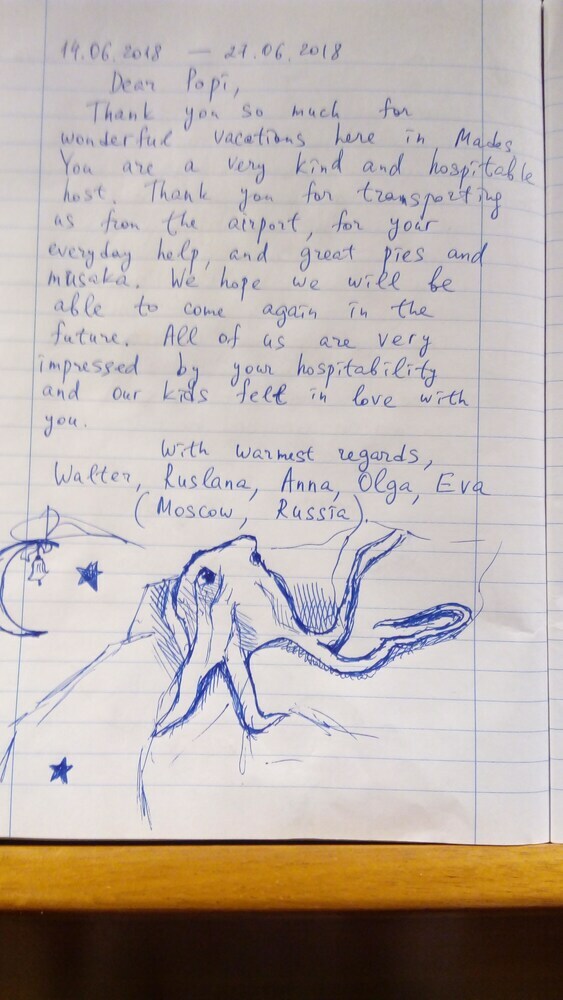 14.06.2018 — 27.06.2018
Dear Popi,
Thank you so much for
wonderful vacations here in Mades
You are a very kind and hospitable
host. Thank you for transporting
us from the airport, for your
everyday help, and great pies and
musaka. We hope we will be
able to come again in the
future. All of us are very
impressed by your hospitability
and our kids fell in love with
you.
With warmest regards,
Walter, Ruslana, Anna, Olga, Eva
(Moscow, Russia).